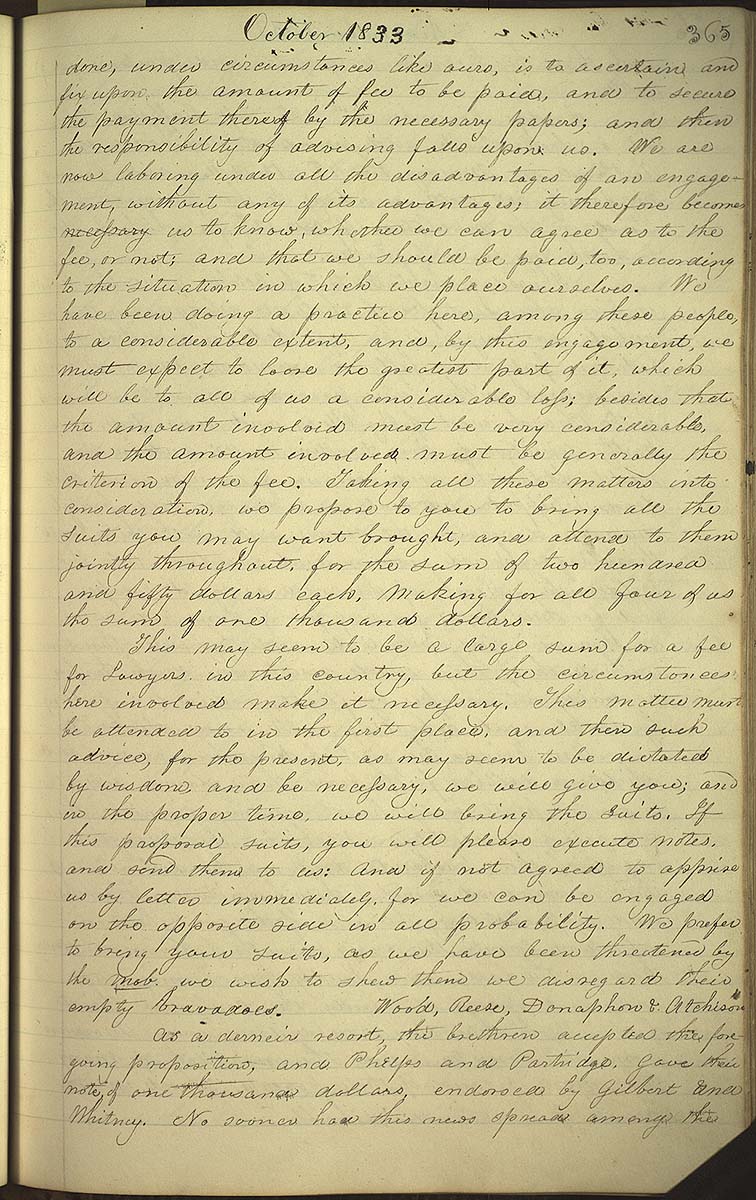 October 1833
365
done, under circumstances like ours, is to ascertain and
fix upon the amount of fee to be paid, and to secure
the payment thereof by the necessary papers; and then
the responsibility of advising falls upon us. We are
now laboring under all the disadvantages of an engage-
ment, without any of its advantages; it therefore becomes
necessary us to know, whether we can agree as to the
fee, or not; and that we should be paid, too, according
to the situation in which we place ourselves. We
have been doing a practice here, among these people,
to a considerable extent, and, by this engagement, we
must expect to loose the greatest part of it, which
will be to all of us a considerable loss; besides that
the amount involved must be very considerable,
and the amount involved must be generally the
criterion of the fee. Taking all these matters into
consideration, we propose to you to bring all the
suits you may want brought, and attend to them
jointly throughout, for the sum of two hundred
and fifty dollars each, making for all four of us
the sum of one thousand dollars.
This may seem to be a large sum for a fee
for Lawyers in this country, but the circumstances
here involved make it necessary. This matter must
be attended to in the first place, and then such
advice, for the present, as may seem to be dictated
by wisdom, and be necessary, we will give you; and
in the proper time, we will bring the suits. If
this proposal suits, you will please execute notes,
and send them to us: And if not agreed to apprise
us by letter immediately, for we can be engaged
on the opposite side in all probability. We prefer
to bring your suits, as we have been threatened by
the mob. we wish to shew them we disregard their
empty bravadoes. Wood, Reese, Donaphon & Atchison
As a derneir resort, the brethren accepted the fore-
going proposition, and Phelps and Partridge, gave their
note, of one thousand dollars, endorsed by Gilbert and
Whitney. No sooner had this news spread among the